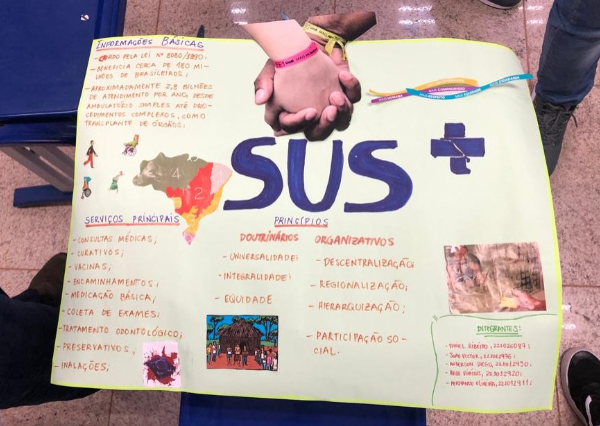 INFORMAÇÕES BÁSICAS
- CRIADO PELA LEI Nº 8080/1990;
- BENEFICIA CERCA DE 180 MI-
LHÕES DE BRASILEIROS;
- APROXIMADAMENTE 2,8 BILHÕES
DE ATENDIMENTO POR ANO, DESDE
AMBULATÓRIO SIMPLES ATÉ PRO-
CEDIMENTOS COMPLEXOS, COMO
TRANSPLANTE DE ÓRGÃOS;
SUS
4
2
SERVIÇOS PRINCIPAIS
- CONSULTAS MÉDICAS;
- CURATIVOS;
- VACINAS;
- ENCAMINHAMENTOS;
- MEDICAÇÃO BÁSICA;
- COLETA DE EXAMES;
- TRATAMENTO ODONTOLÓGICO;
- PRESERVATIVOS;
- INALAÇÕES;
PRINCÍPIOS
DOUTRINÁRIOS
- UNIVERSALIDADE;
- INTEGRALIDADE;
- EQUIDADE
ORGANIZATIVOS
- DESCENTRALIZAÇÃO;
- REGIONALIZAÇÃO;
- HIERARQUIZAÇÃO;
- PARTICIPAÇÃO SO-
CIAL.
INTEGRANTES: